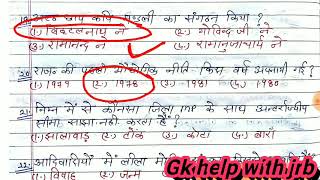 19. अष्ट छाप कवि मण्डली का संगठन किया ?
(1.) विठ्ठलनाथ ने (2.) गोविन्द जी ने
(3.) रामानन्द ने (4.) रामानुजाचार्य ने
20. राज. की पहली औद्योगिक नीति किस वर्ष अपनायी गई ?
(1.) 1979 (2.) 1978 (3.) 1981 (4.) 1980
21. निम्न में से कौनसा जिला MP के साथ अन्तर्राज्यीय
सीमा साझा नहीं करता है ?
(1.) झालावाड़ (2.) टोंक (3.) कोटा (4.) बारां
22. आदिवासियों में लीला मो
(1.) विवाह (2.) जन्म
Gk help with jrb